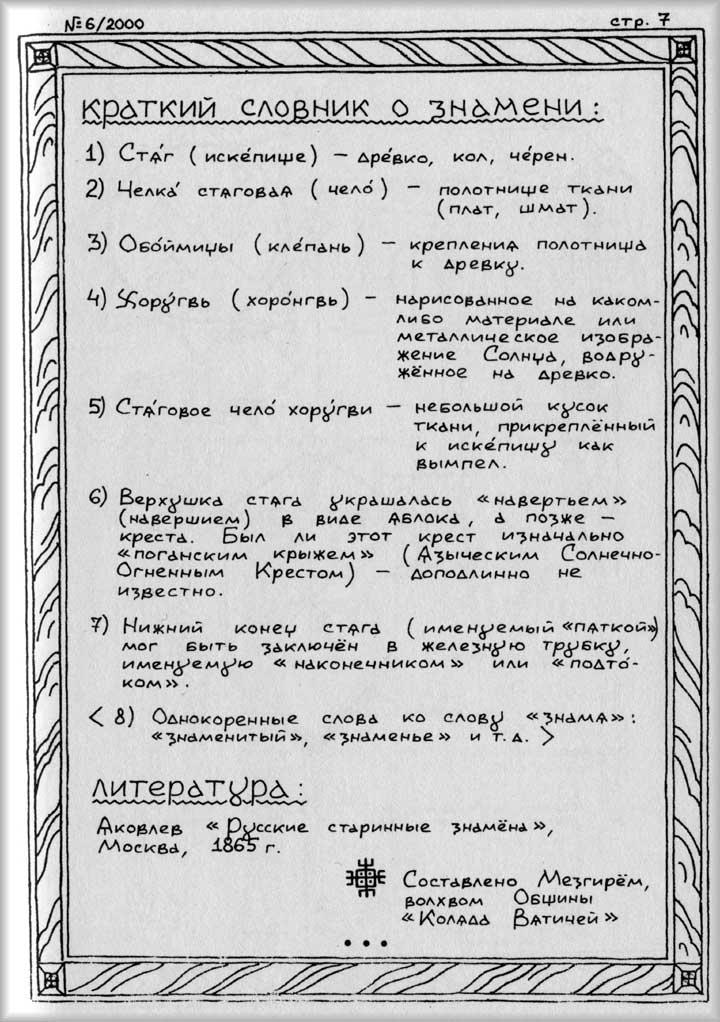 №6/2000 стр. 7
Краткий словник о знамени:
1) Стя́г (иске́пище) – дре́вко, кол, че́рен.
2) Челка́ стяговая (чело́) – полотнище ткани
(плат, шмат).
3) Обо́ймицы (кле́пань) – крепления полотнища
к древку.
4) Хору́гвь (хоро́нгвь) – нарисованное на каком-
либо материале или
металлическое изобра-
жение Солнца, водру-
жённое на древко.
5) Стя́говое чело́ хору́гви – небольшой кусок
ткани, прикреплённый
к иске́пищу как
вымпел.
6) Верхушка стяга украшалась «навертьем»
(навершием) в виде яблока, а позже –
креста. Был ли этот крест изначально
«поганским крыжем» (Языческим Солнечно-
Огненным Крестом) – доподлинно не
известно.
7) Нижний конец стяга (именуемый «пяткой»)
мог быть заключён в железную трубку,
именуемую «наконечником» или «подто́-
ком».
< 8) Однокоренные слова ко слову «знамя»:
«знаменитый», «знаменье» и т.д. >
Литература:
Яковлев «Русские старинные знамёна»,
Москва, 1865 г.
Составлено Мезгирём,
волхвом Общины
«Коляда Вятичей»